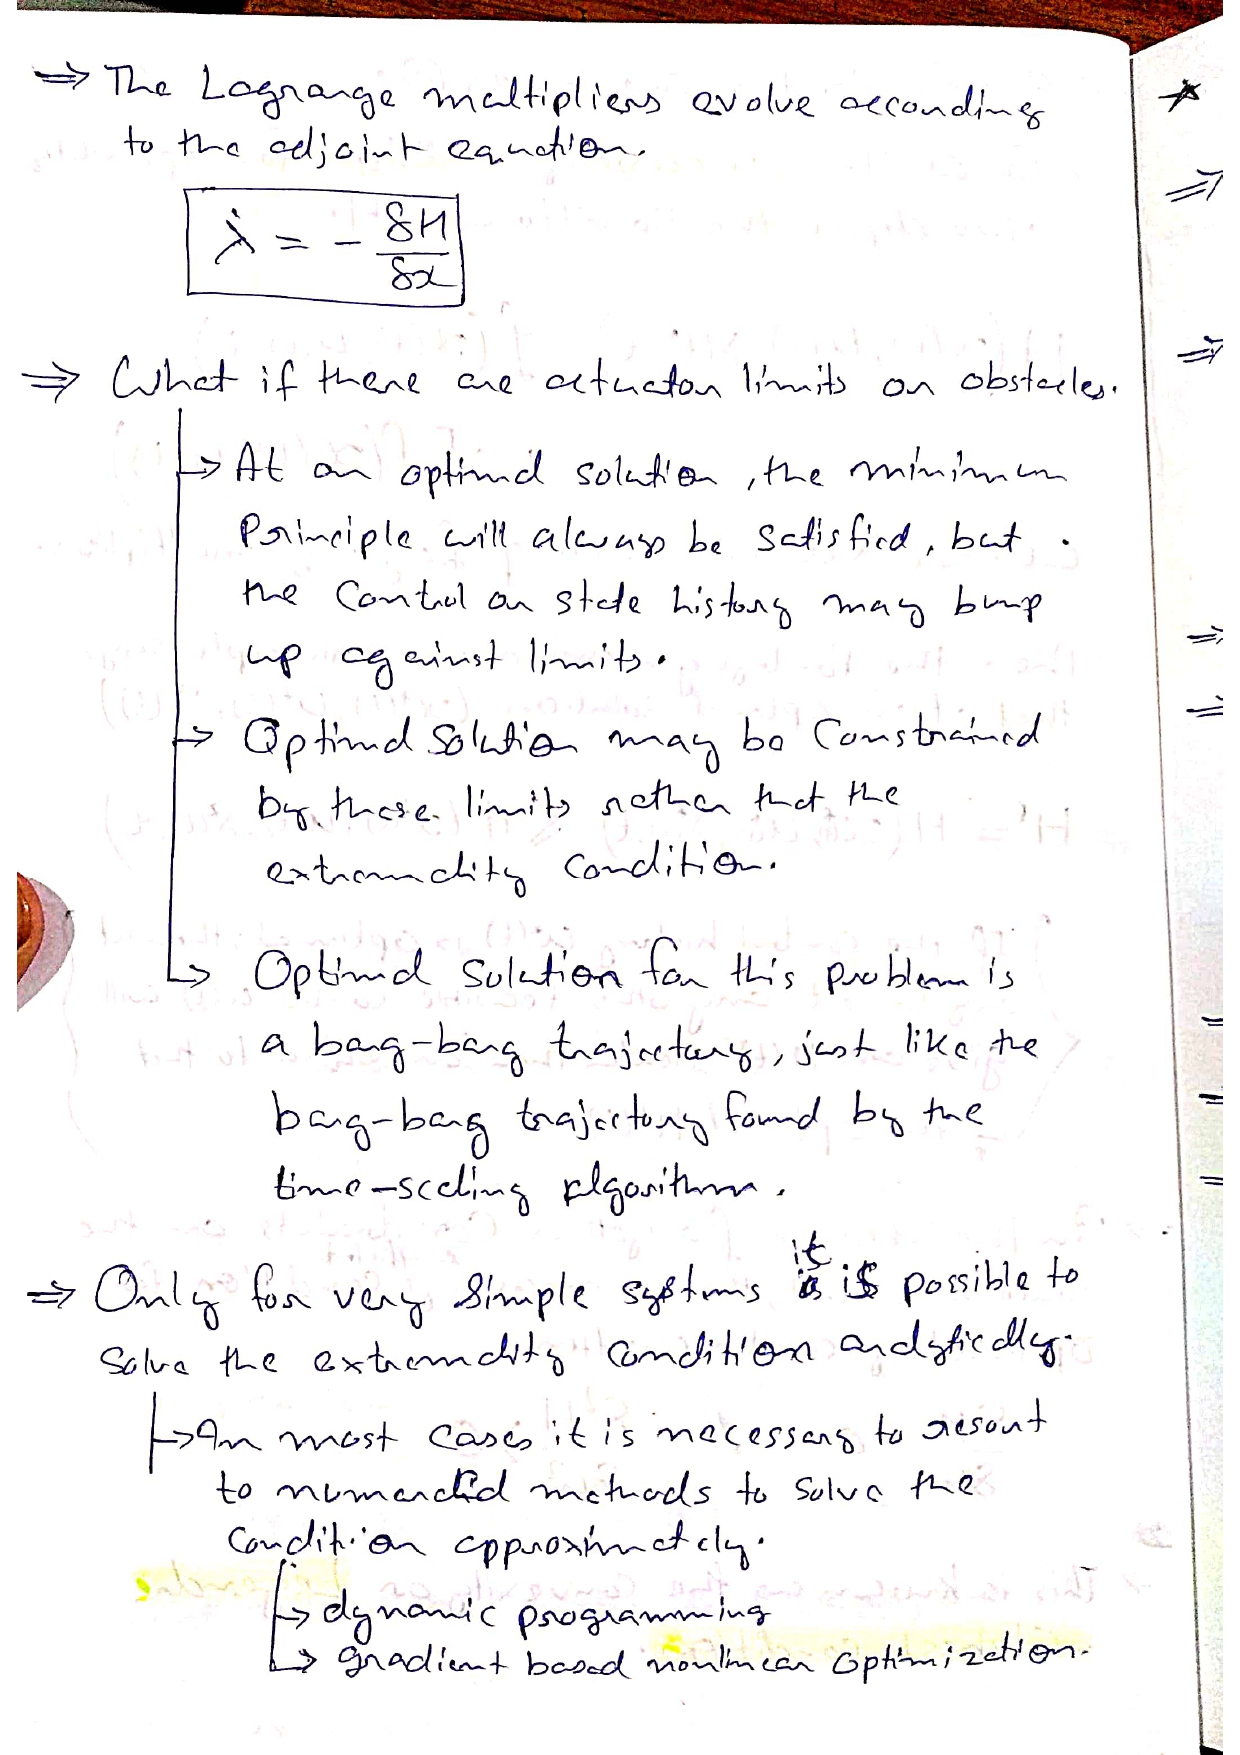 ⇒ The Lagrange multipliers evolve according
to the adjoint equation.
λ̇ = - δH/δx
⇒ What if there are actuator limits or obstacles.
↳ At an optimal solution, the minimum
Principle will always be satisfied, but
the Control or state history may bump
up against limits.
↳ Optimal Solution may be Constrained
by these limits rather that the
extremality condition.
↳ Optimal Solution for this problem is
a bang-bang trajectory, just like the
bang-bang trajectory found by the
time-scaling algorithm.
⇒ Only for very Simple systems it is possible to
Solve the extremality Condition analytically.
↳ In most cases it is necessary to resort
to numerical methods to Solve the
Condition approximately.
↳ dynamic programming
↳ gradient based nonlinear optimization.